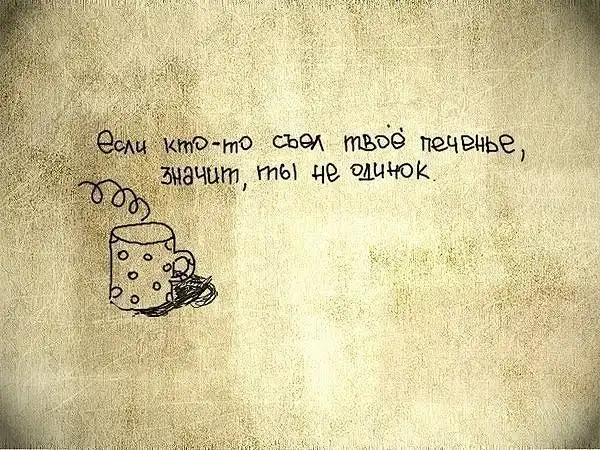 Если кто-то съел твоё печенье,
значит, ты не одинок.